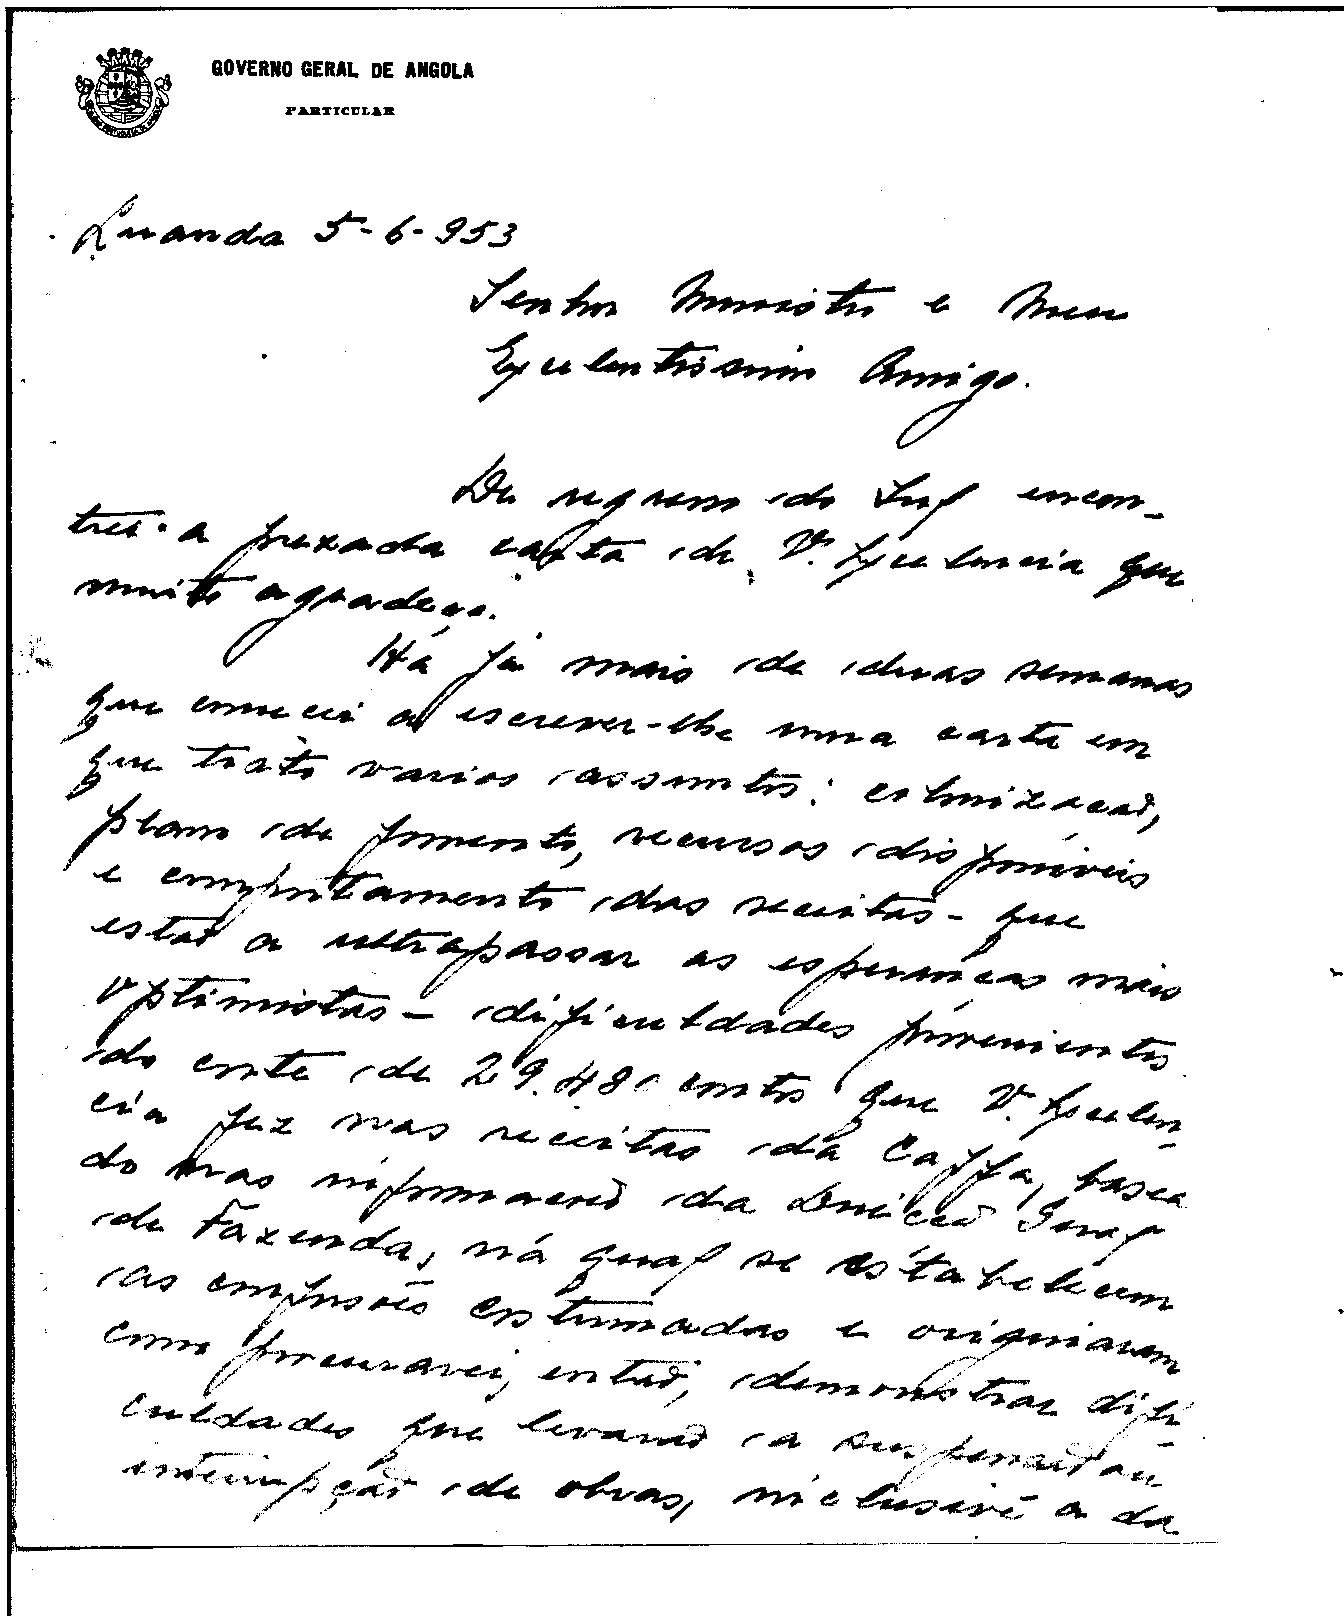 GOVERNO GERAL DE ANGOLA
PARTICULAR
Luanda 5-6-953
Senhor Ministro e Meu
Excelentissimo Amigo.
De regresso do Sul encon-
trei a prezada carta de V. Excelencia que
muito agradeço.
Há já mais de duas semanas
que comecei a escrever-lhe uma carta em
que trato varios assuntos: colonização,
plano de fomento, recursos disponiveis
e comportamento das receitas - que
estão a ultrapassar as esperanças mais
optimistas - dificuldades provenientes
do corte de 29.480 contos que V. Excelen-
cia fez nas receitas da Caffa, basea
do nas informações da Direcção Geral
de Fazenda, na qual se estabelecem
as confusões costumadas e originaram
como procurarei, então, demonstrar difi-
culdades que levarão a suspensão ou
interrupção de obras, inclusivé a da